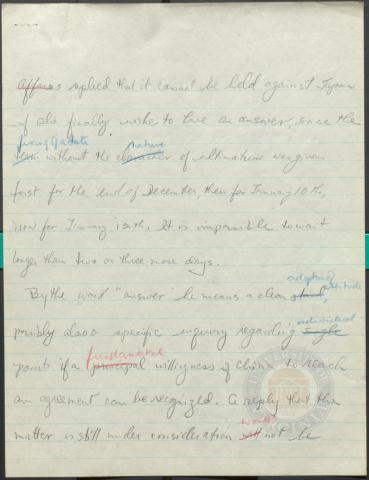 Affairs replied that it cannot be held against Japan
if she finally wishes to have an answer, since the
fixing of a date nature
term without the character of ultimatum was given
first for the end of December, then for January 10th,
now for January 15th. It is impossible to wait
longer than two or three more days.
adoption of attitude
By the word "answer" he means a clear stand,
individual
possibly also a specific inquiry regarding single
fundamental
points if a principal willingness of China to reach
an agreement can be recognized. A reply that the
would
matter is still under consideration will not be